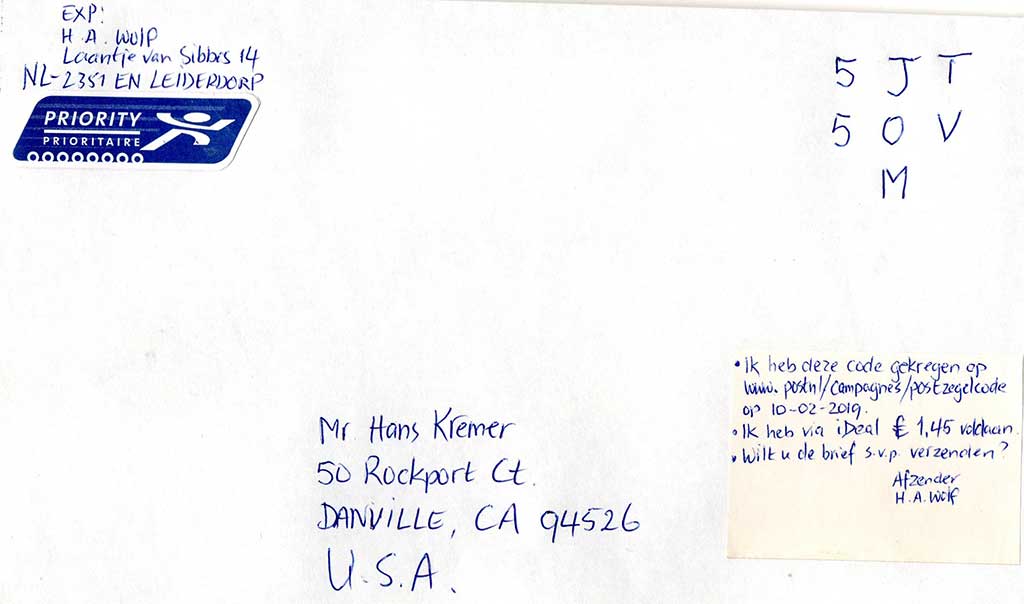 EXP:
H.A. Wolf
Laantje van Sibbes 14
NL-2351 EN LEIDERDORP
PRIORITY
PRIORITAIRE
5 J T
5 O V
M
• Ik heb deze code gekregen op
www.postnl/campagnes/postzegelcode
op 10-02-2019.
• Ik heb via iDeal € 1,45 voldaan.
• Wilt u de brief s.v.p. verzenden?
Afzender
H.A. Wolf
Mr. Hans Kremer
50 Rockport Ct.
DANVILLE, CA 94526
U.S.A.